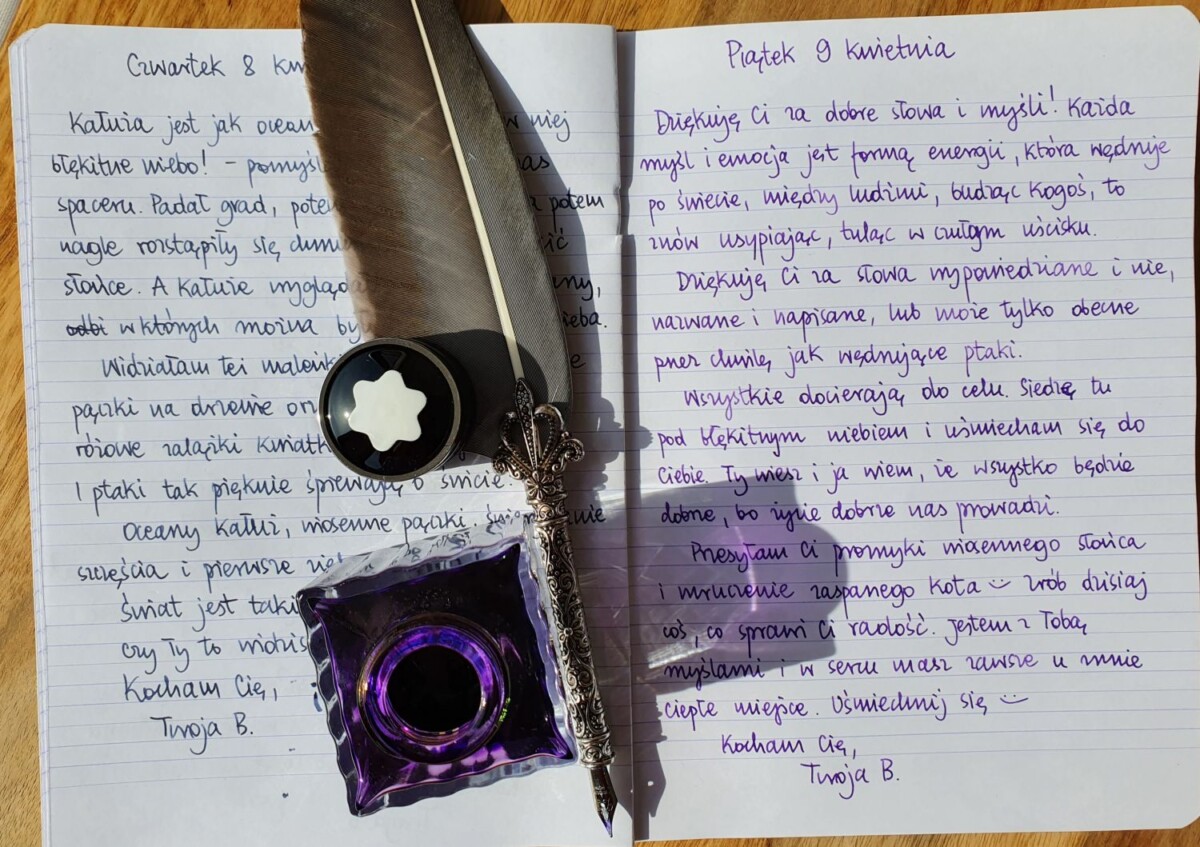 Czwartek 8
Kałuża jest jak ocean w niej
błękitne niebo! –
spaceru. Padał grad, potem
nagle rozstąpiły się
słońce. A kałuże
odbi w których można
Widziałam też
pączki na drzewie
różowe zalążki
I ptaki tak pięknie śpiewają o świcie
Oceany kałuż, wiosenne pączki.
szczęścia i pierwsze
Świat jest taki
czy Ty to
Kocham Cię,
Twoja B.
Piątek 9 kwietnia
Dziękuję Ci za dobre słowa i myśli! Każda
myśl i emocja jest formą energii, która wędruje
po świecie, między ludźmi, budząc kogoś, to
znów usypiając, tuląc w czułym uścisku.
Dziękuję Ci za słowa wypowiedziane i nie,
nazwane i napisane, lub może tylko obecne
przez chwilę, jak wędrujące ptaki.
Wszystkie docierają do celu. Siedzę tu
pod błękitnym niebiem i uśmiecham się do
Ciebie. Ty wiesz i ja wiem, że wszystko będzie
dobrze, bo życie dobrze nas prowadzi.
Przesyłam Ci promyki wiosennego słońca
i mruczenie zaspanego kota Zrób dzisiaj
coś, co sprawi Ci radość. Jestem z Tobą
myślami i w sercu masz zawsze u mnie
ciepłe miejsce. Uśmiechnij się
Kocham Cię,
Twoja B.